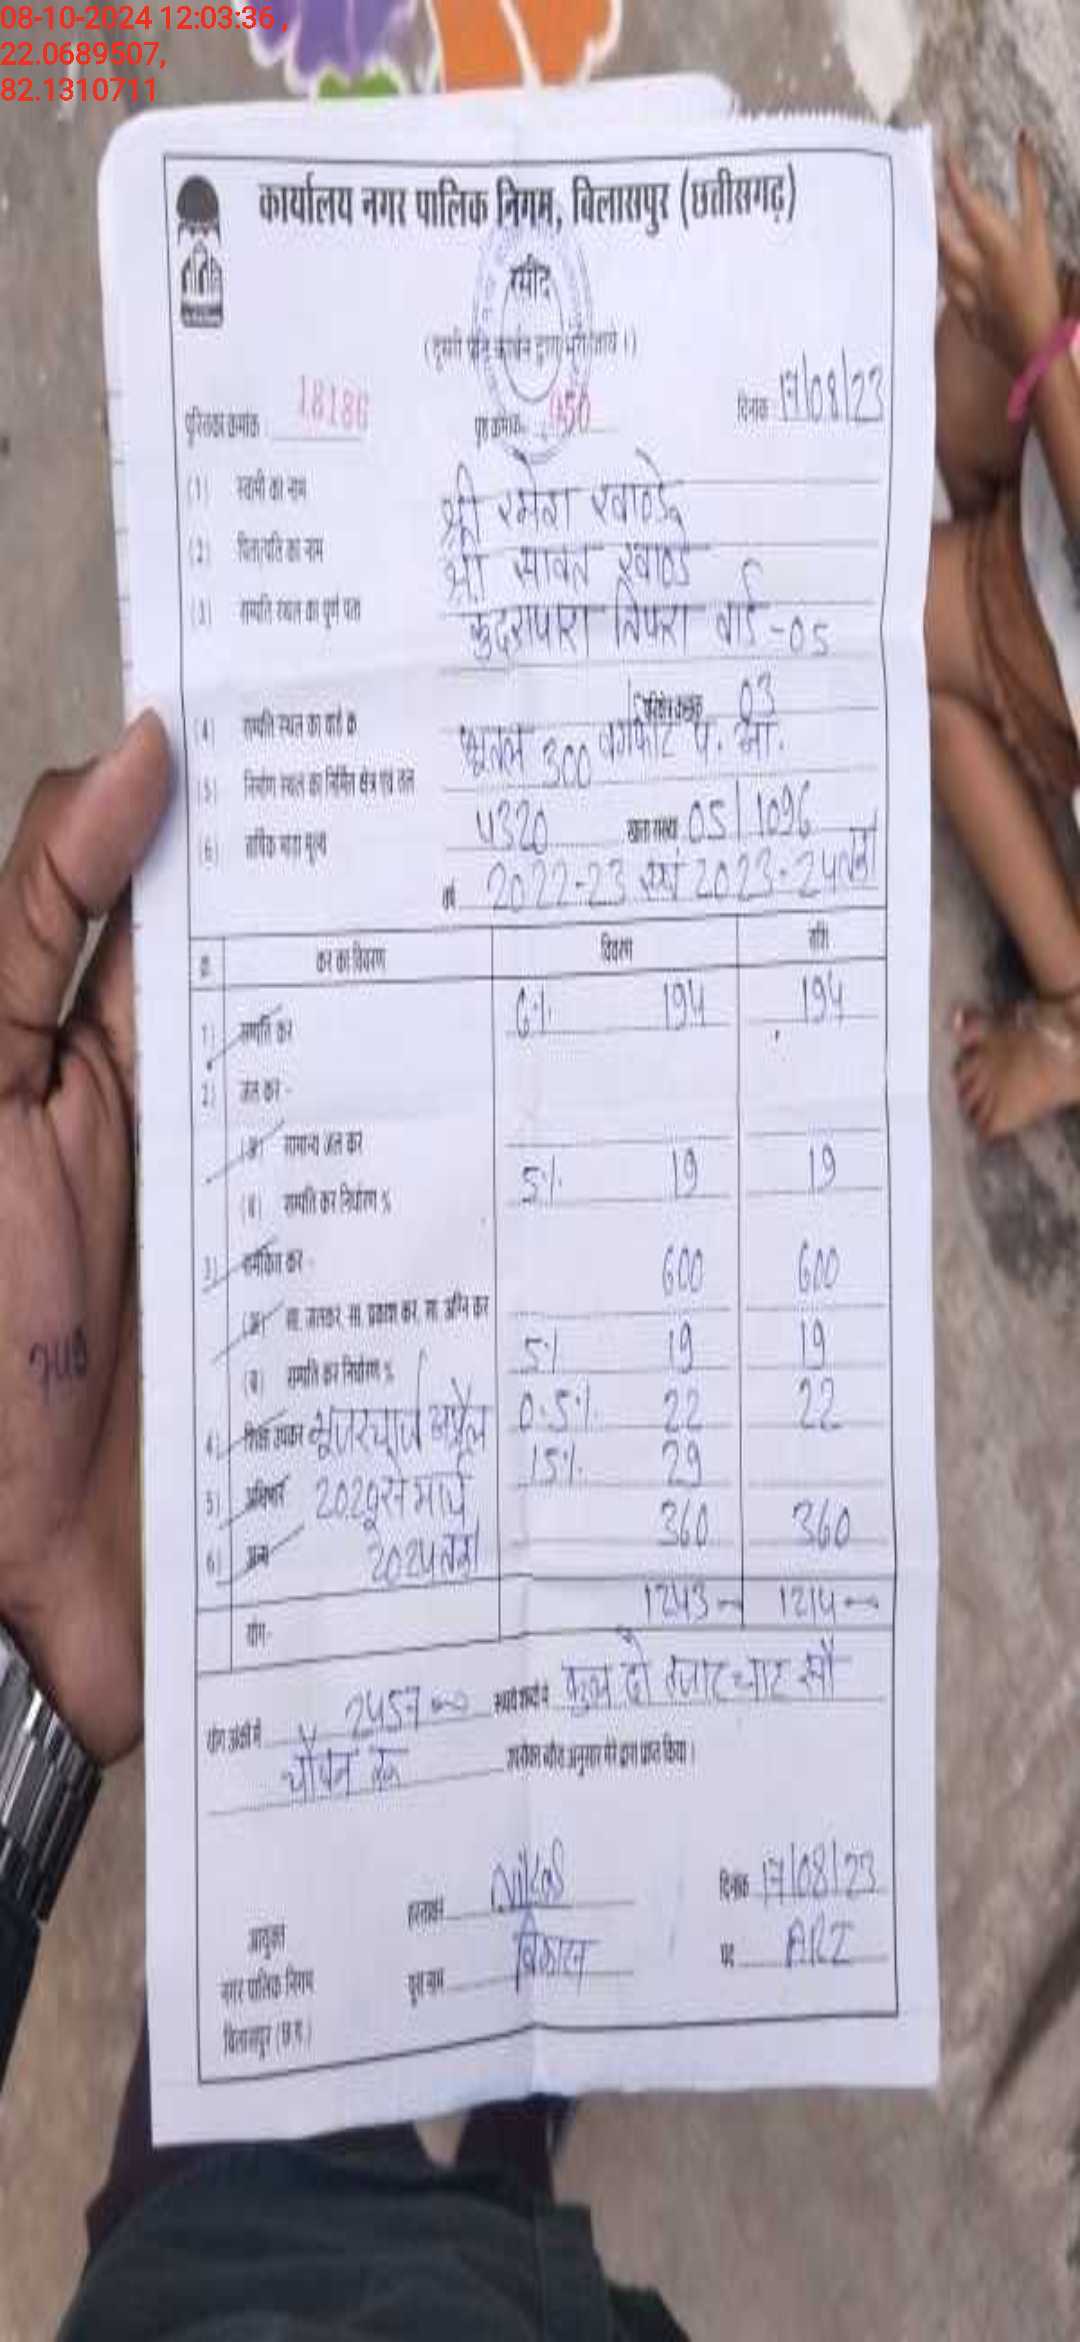 08-10-2024 12:03:36 ,
22.0689507,
82.1310711
कार्यालय नगर पालिक निगम, बिलासपुर (छत्तीसगढ़)
रसीद
पुस्तिका क्रमांक 18186 पृष्ठ क्रमांक 050 दिनांक 17/08/23
(1) स्वामी का नाम श्री रमेश खाण्डे
(2) पिता/पति का नाम श्री खाण्डे
(3) सम्पत्ति स्थल का पूर्ण पता कुदरापारा तिफरा वार्ड-05
(4) सम्पत्ति स्थल का वार्ड क्र 03
(5) निर्माण स्थल का निर्मित क्षेत्र एवं तल भूतल 300 वर्गफीट प. आ.
(6) वार्षिक भाड़ा मूल्य 4320 खाता संख्या 05/1096
वर्ष 2022-23 एवं 2023-24 तक
क्र. कर का विवरण विवरण राशि
1) सम्पत्ति कर 6% 194 194
2) जल कर -
(अ) सामान्य जल कर
(ब) सम्पत्ति कर निर्धारण % 5% 19 19
3) समेकित कर - 600 600
(अ) सा. जलकर, सा. प्रकाश कर, सा. अग्नि कर
(ब) सम्पत्ति कर निर्धारण % 5% 19 19
4) शिक्षा उपकर यूजरचार्ज अप्रैल 0.5% 22 22
5) अधिभार 2020 से मार्च 15% 29
6) अन्य 2024 तक 360 360
योग- 1243 1214
योग अंकों में 2457 रूपये शब्दों में कुल दो हजार चार सौ
उपरोक्त ब्यौरा अनुसार मेरे द्वारा प्राप्त किया।
हस्ताक्षर दिनांक 17/08/23
आयुक्त
नगर पालिक निगम पूरा नाम विकास पद ARI
बिलासपुर (छ.ग.)